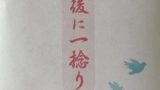 後に一捻り